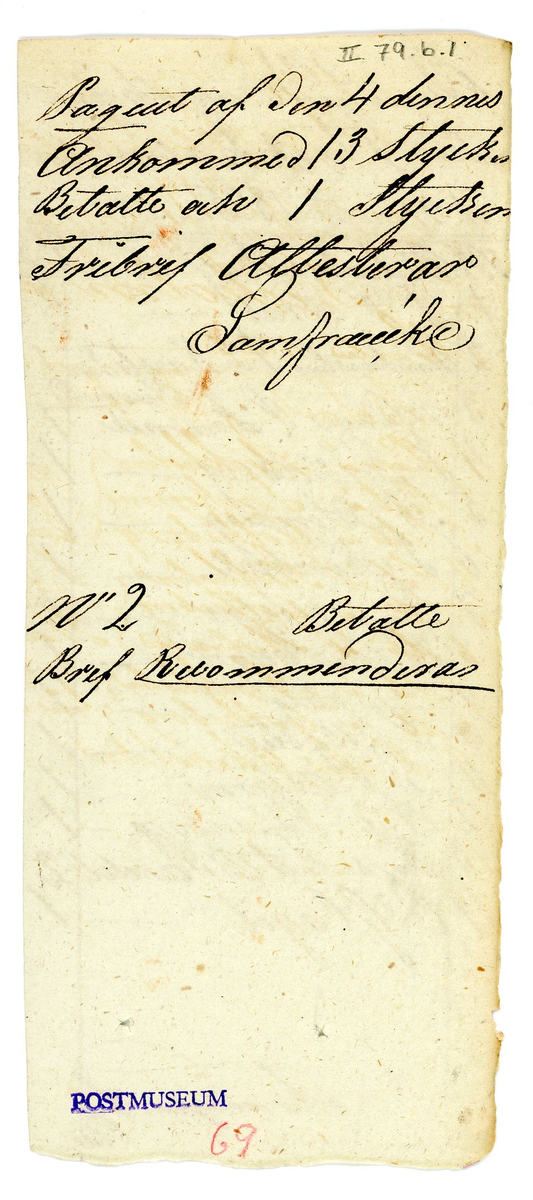 II 79.b.1
Paquet af den 4 dennes
Ankommed 13 Stycken
Betalte och 1 Stycken
Fribref Attesterar
N° 2 Betalte
Bref Recommenderas
POSTMUSEUM
69